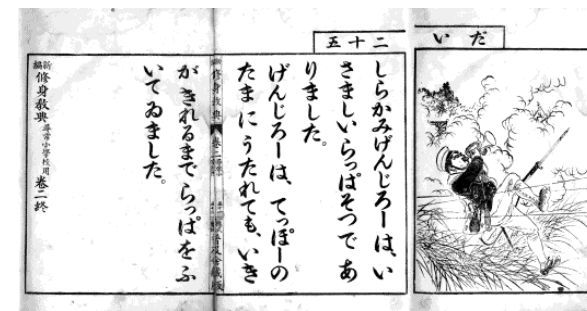 だい
二十五
しらかみげんじろーは、い
さましいらっぱそつであ
りました。
げんじろーは、てっぽーの
たまにうたれても、いき
修身教典 卷二
がきれるまでらっぱをふ
いてゐました。
新編修身教典 尋常小學校用 卷二終